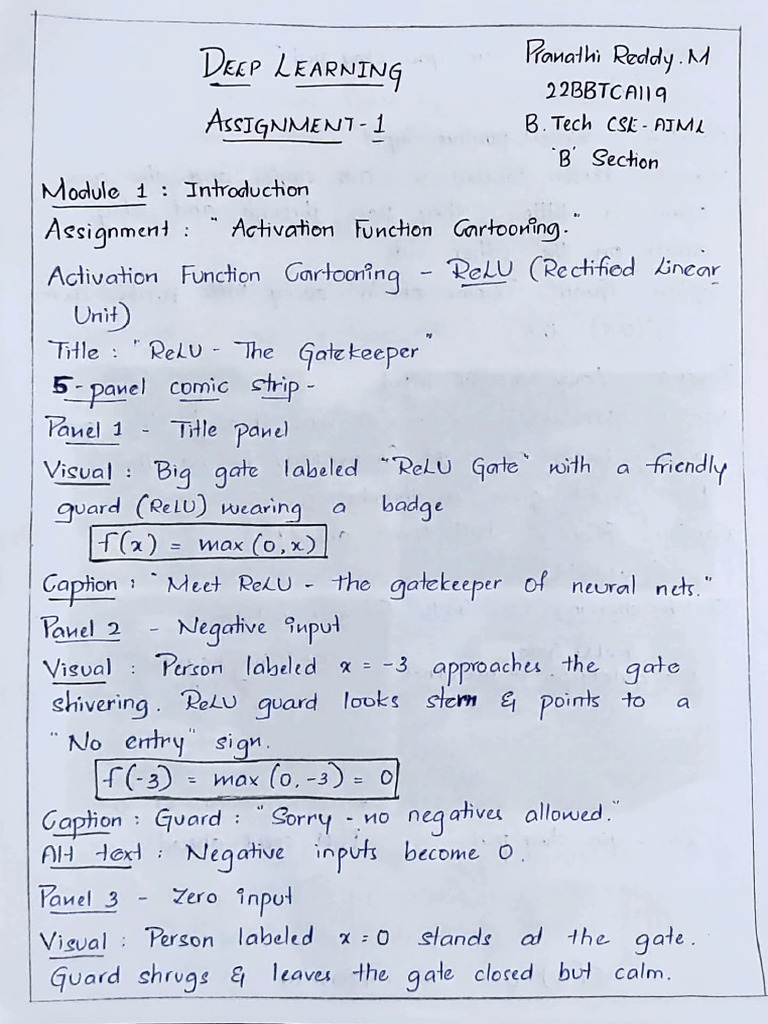 DEEP LEARNING
ASSIGNMENT-1
Pranathi Reddy.M
22BBTCA119
B.Tech CSE-AIML
'B' Section
Module 1 : Introduction
Assignment : "Activation Function Cartooning."
Activation Function Cartooning - ReLU (Rectified Linear
Unit)
Title : "ReLU - The Gatekeeper"
5-panel comic strip -
Panel 1 - Title panel
Visual : Big gate labeled "ReLU Gate" with a friendly
guard (ReLU) wearing a badge
f(x) = max(0,x)
Caption : "Meet ReLU - the gatekeeper of neural nets."
Panel 2 - Negative input
Visual : Person labeled x = -3 approaches the gate
shivering. ReLU guard looks stern & points to a
"No entry" sign.
f(-3) = max(0,-3) = 0
Caption : Guard : "Sorry - no negatives allowed."
Alt text : Negative inputs become 0.
Panel 3 - Zero input
Visual : Person labeled x=0 stands at the gate.
Guard shrugs & leaves the gate closed but calm.